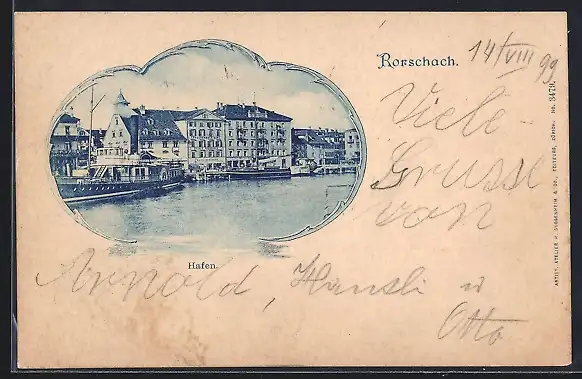 Rorschach.
14/VIII 99
Viele
Grüsse
von
Arnold, Hansli u
Otto
Hafen.
ARTIST. ATELIER H. GUGGENHEIM & CO., EDITEURS, ZÜRICH. No. 3479.